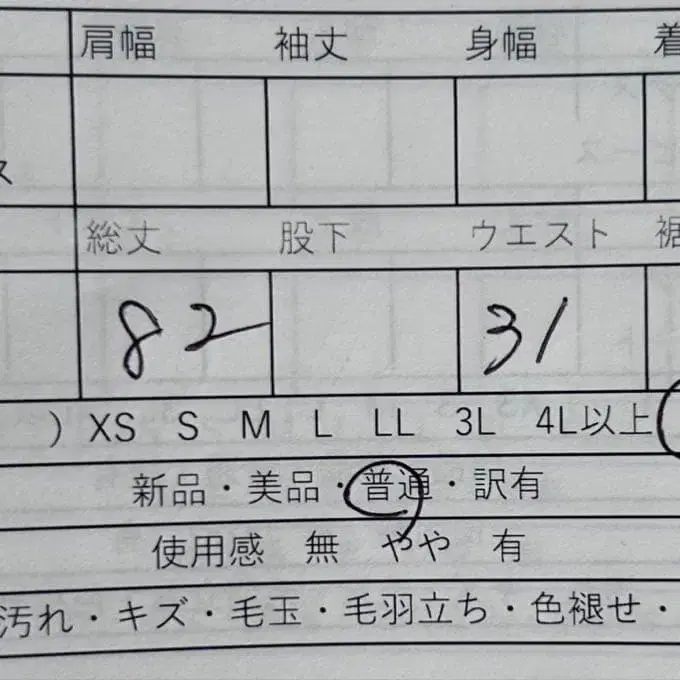 肩幅 袖丈 身幅 着
ス
総丈 股下 ウエスト 裾
82 31
) XS S M L LL 3L 4L以上
新品・美品・普通・訳有
使用感 無 やや 有
汚れ・キズ・毛玉・毛羽立ち・色褪せ・